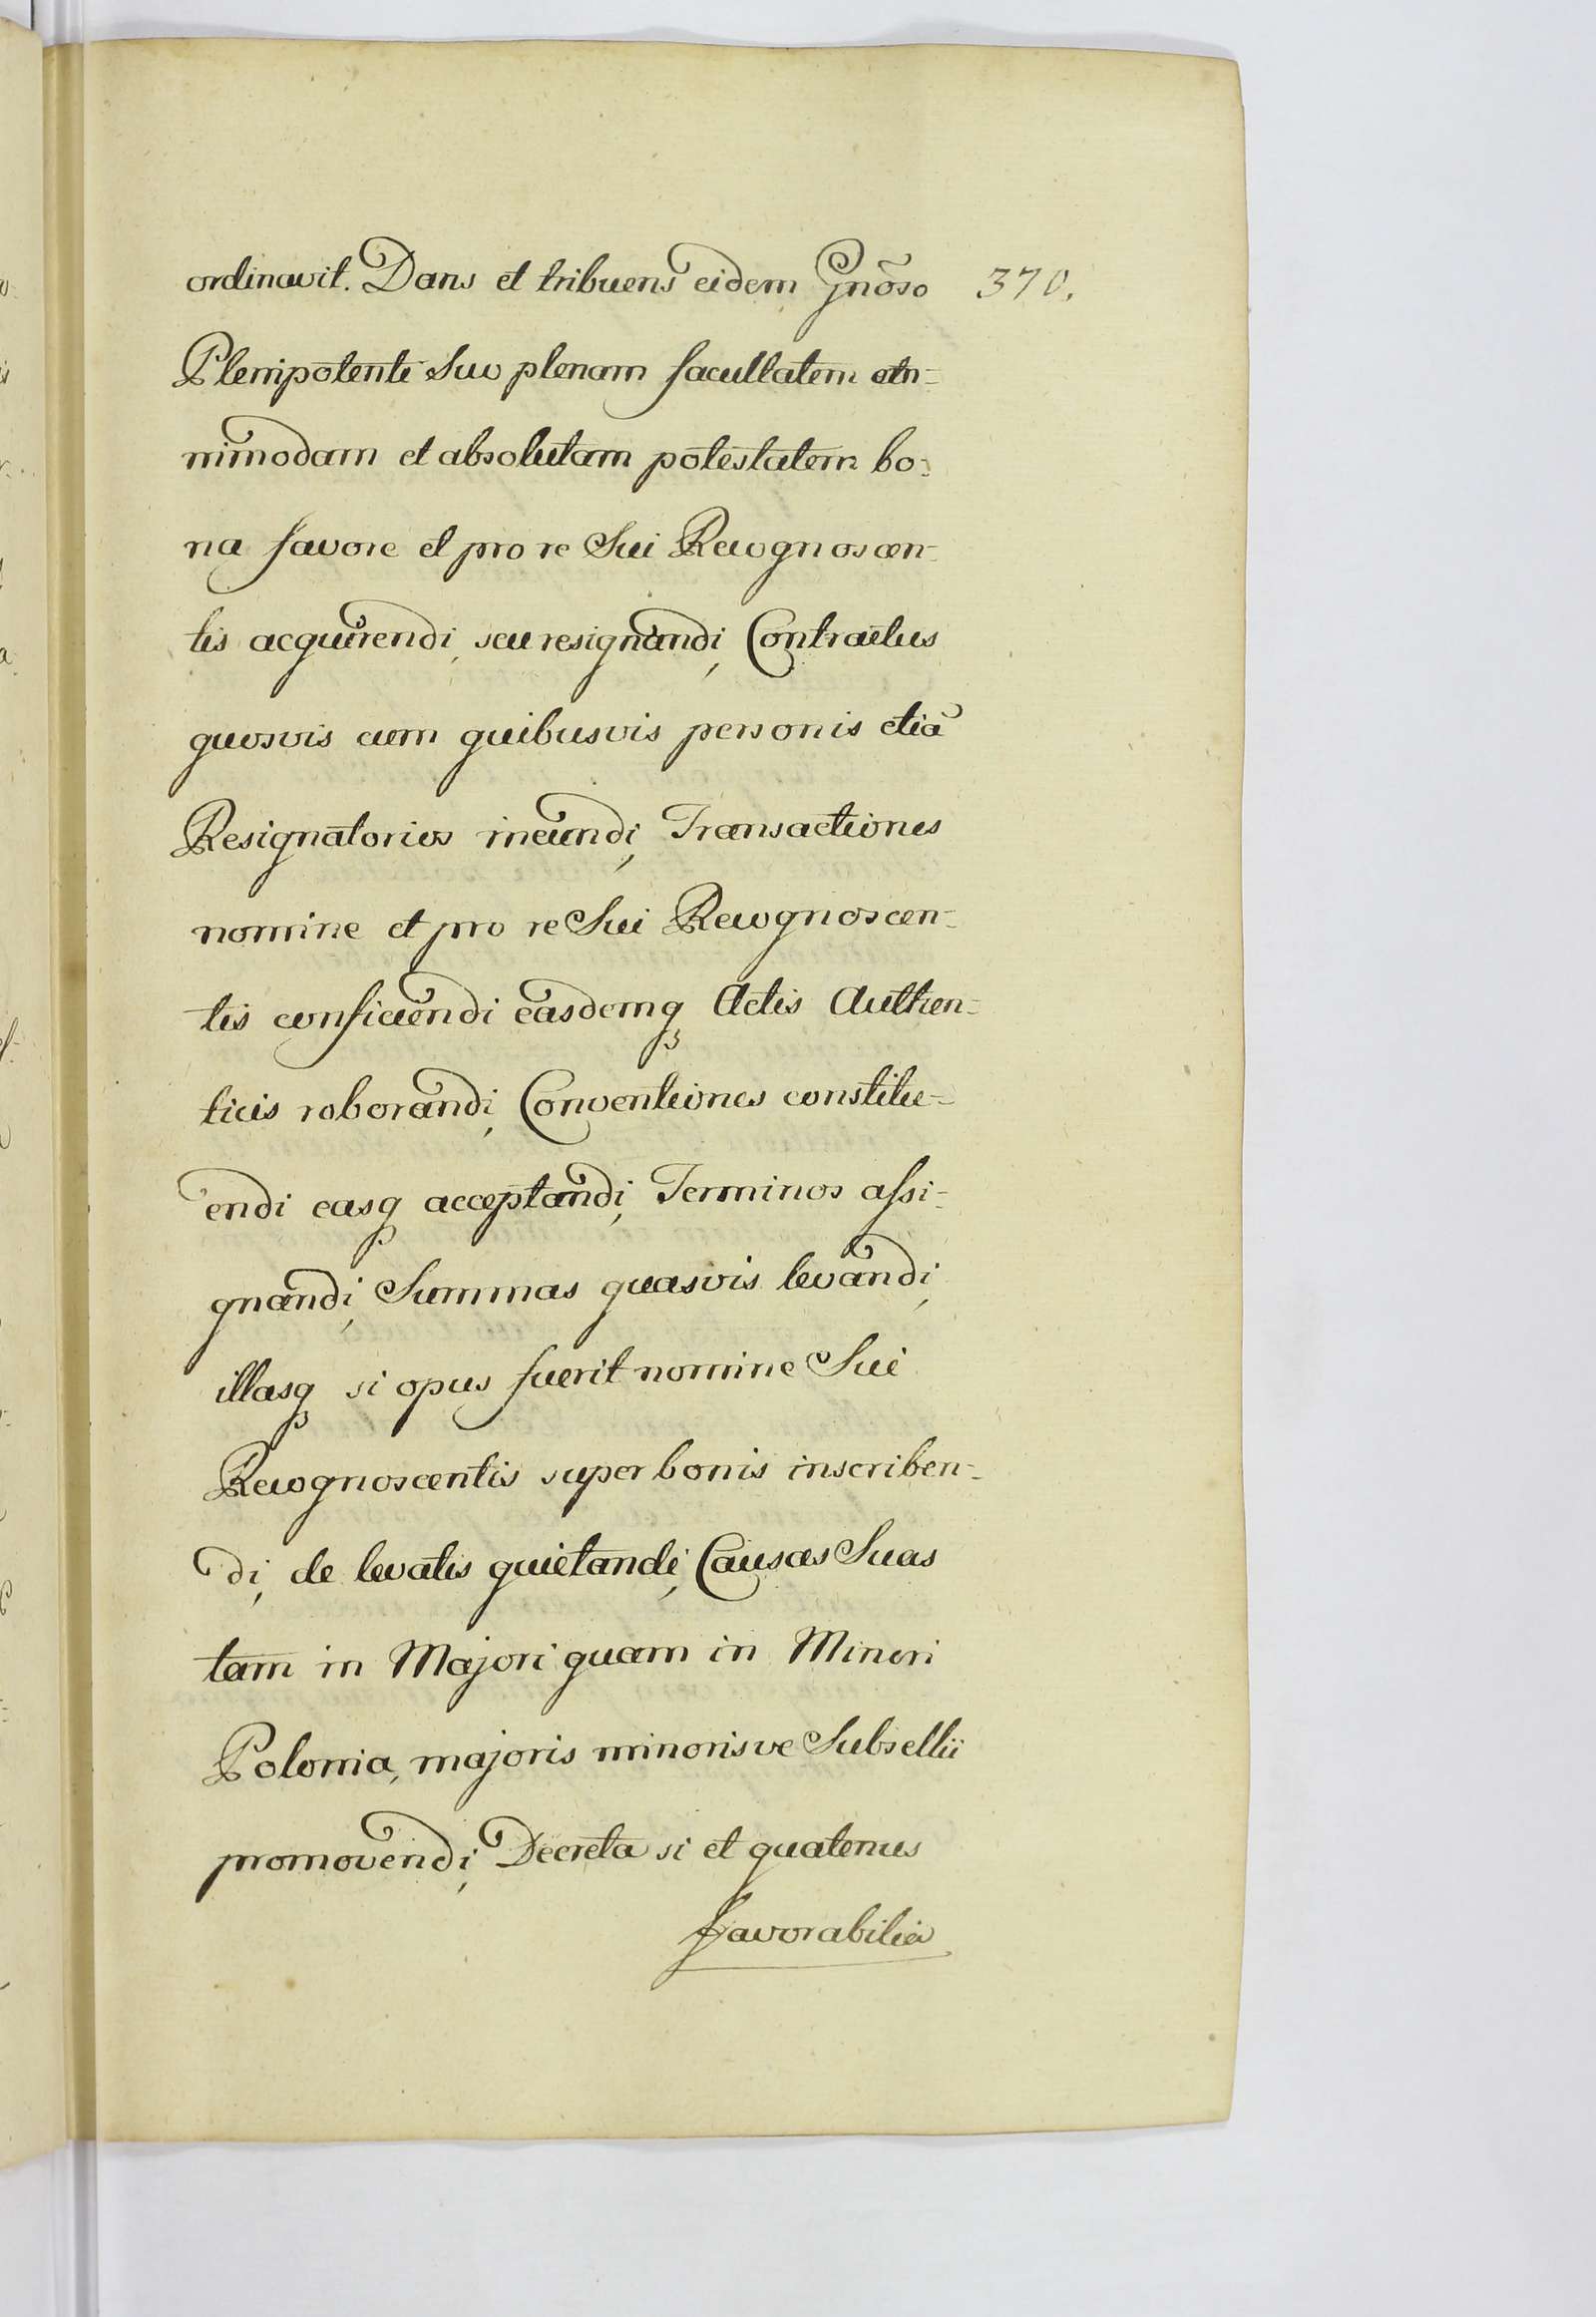 ordinavit. Dans et tribuens eidem Gnõso 370.
Plenipotenti Suo plenam facultatem om=
nimodam et absolutam potestatem bo=
na favore et pro re Sui Recognoscen=
tis acquirendi, seu resignandi, Contractus
quosvis cum quibusvis personis etiã
Resignatorios ineundi, Transactiones
nomine et pro re Sui Recognoscen=
tis conficiendi easdemq Actis Authen=
ticis roborandi, Conventiones constitu=
endi easq acceptandi, Terminos assi=
gnandi, Summas quasvis levandi,
illasq si opus fuerit nomine Sui
Recognoscentis super bonis inscriben=
di, de levatis quietandi, Causas Suas
tam in Majori quam in Minori
Polonia, majoris minorisve Subsellii
promovendi, Decreta si et quatenus
favorabilia